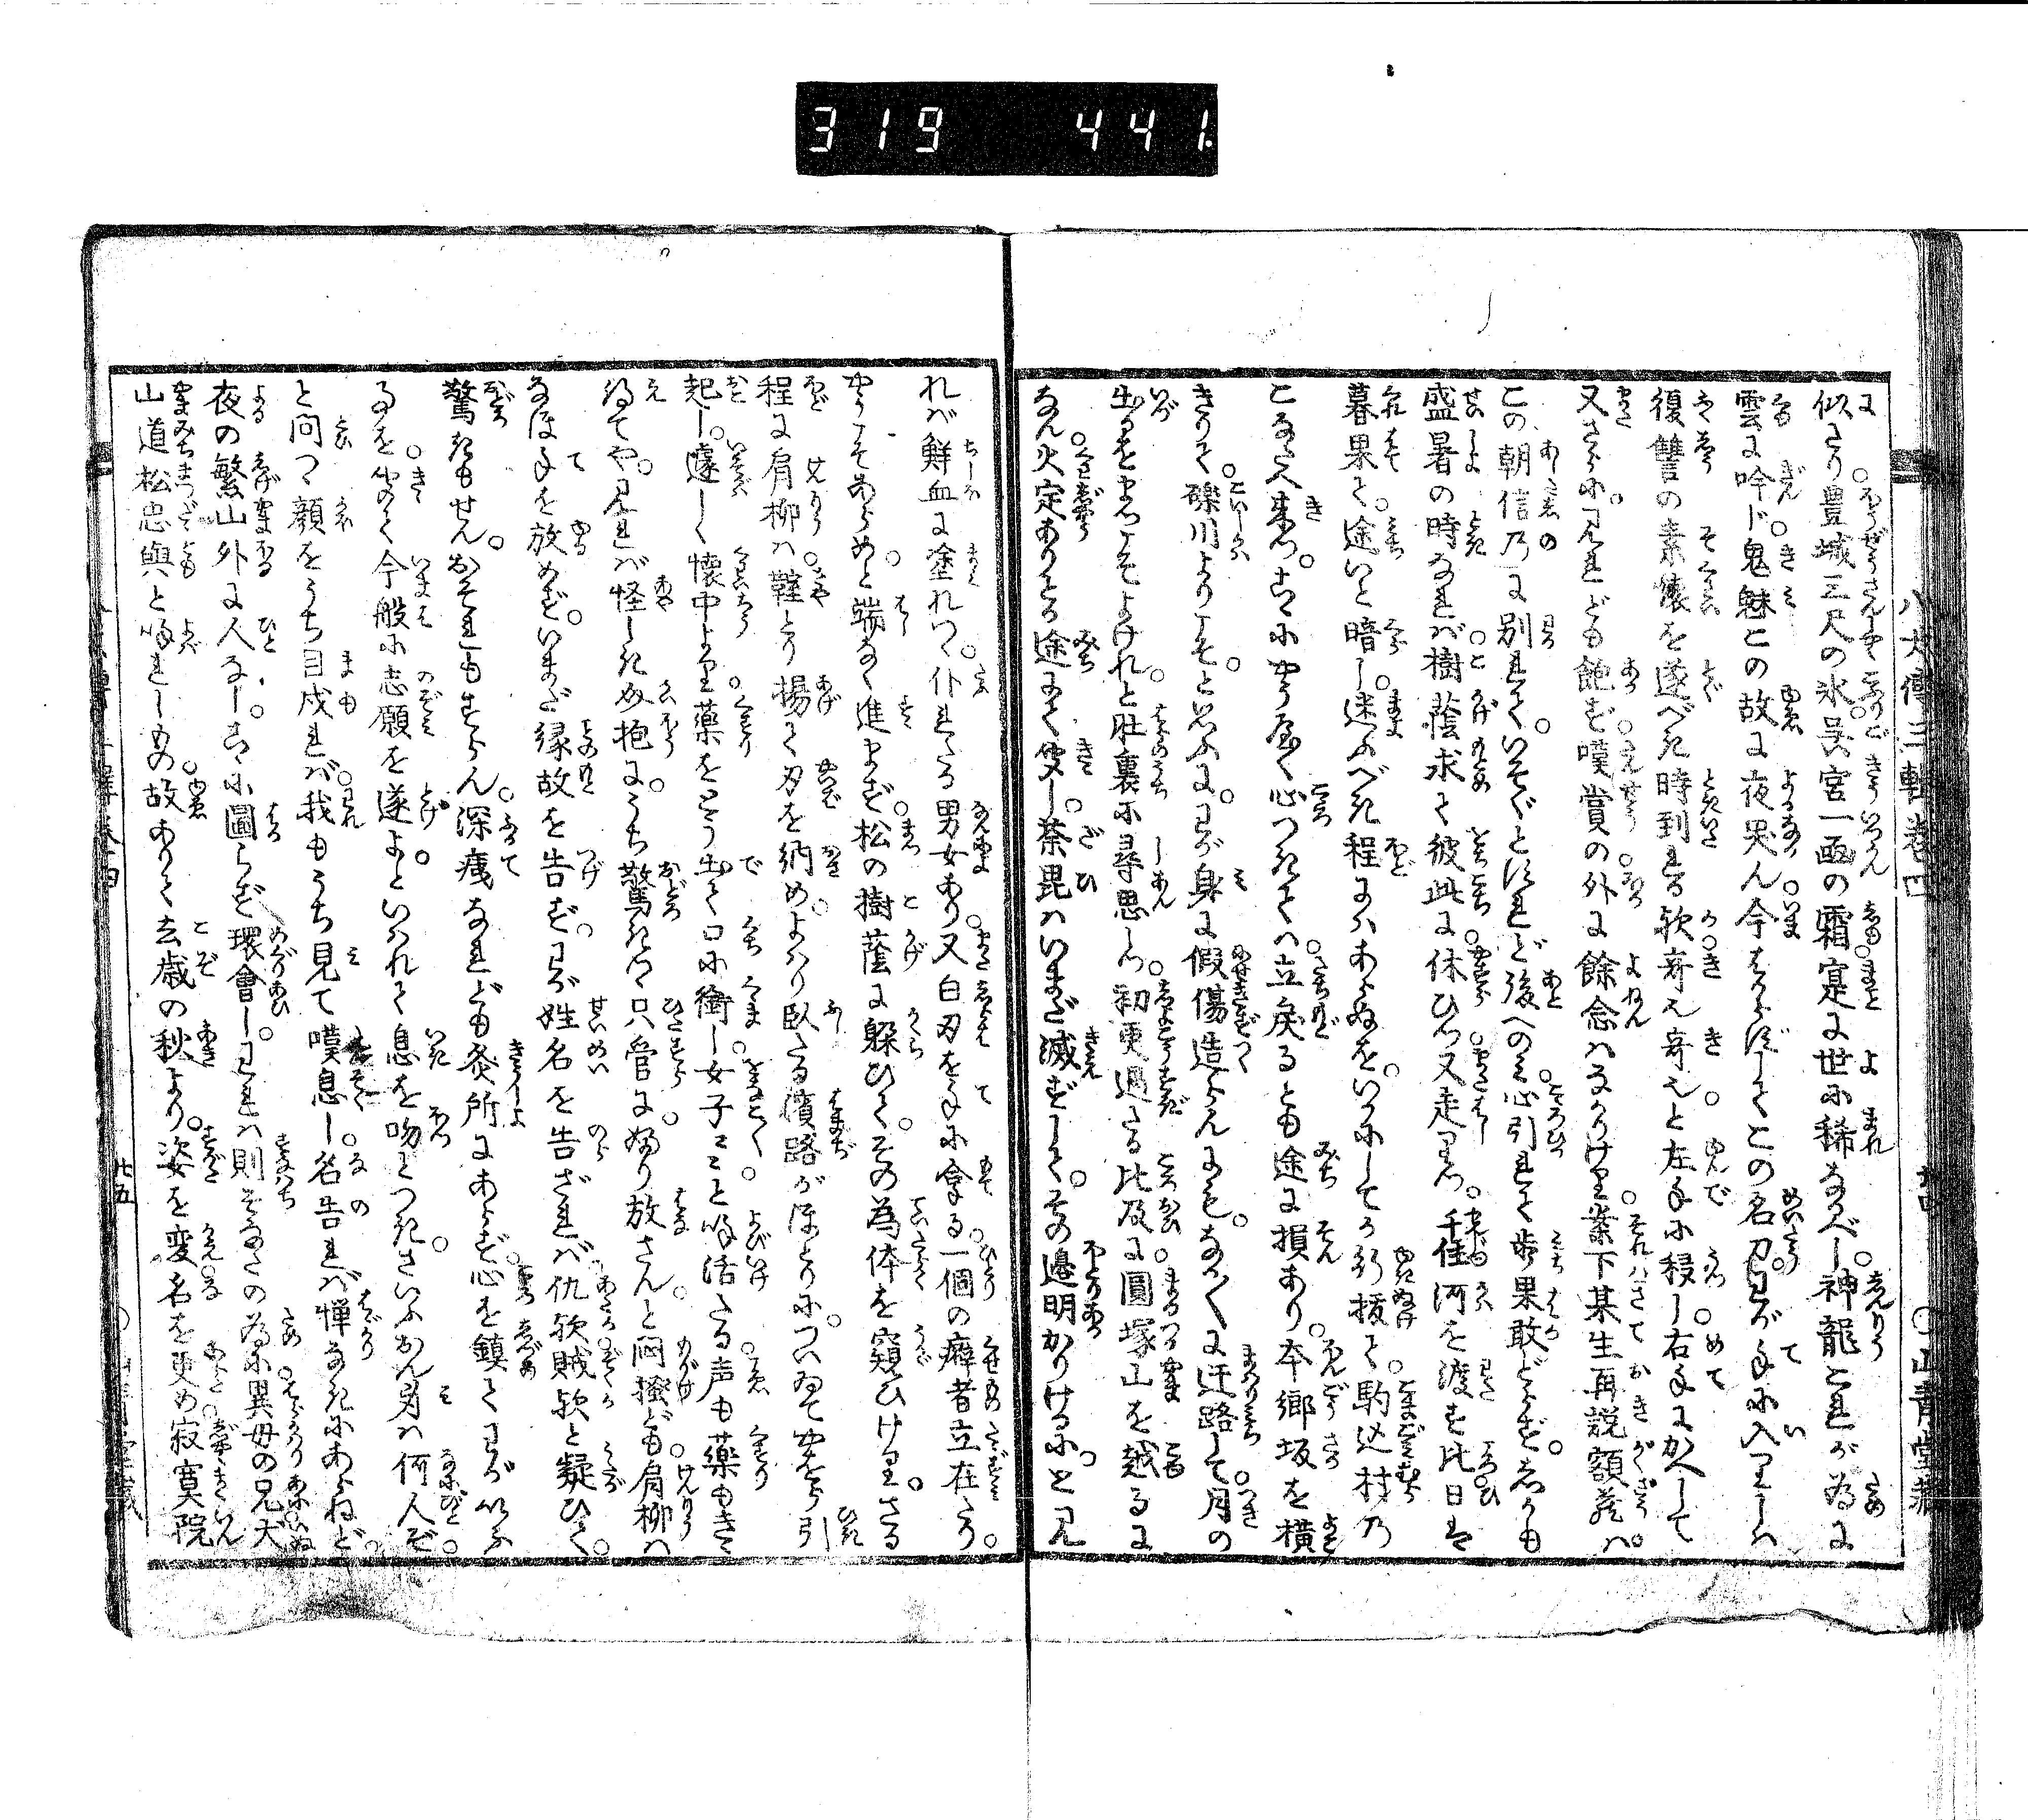 319 441.
八犬傳三輯巻四
山青堂藏
似たり。豊城三尺の氷。呉宮一函の霜。寔に世に稀なるべし。神龍これが為に
雲に吟じ。鬼魅この故に夜哭ん。今はからずしてこの名刀。わが手に入りしは
復讐の素懐を遂べき時到れる歟。奇也奇也と。左手に移し。右手にかへして
又さらに。見れども飽ず。嘆賞の外に餘念はなかりけり。案下某生再説額藏は。
この朝信乃に別れて。いそぐとすれど後への心引れて歩果敢どらず。しかも
盛暑の時なれば。樹蔭求て彼此に。休ひつ又走りつ。千住河を渡す比日は
暮果て。途いと暗し。迷ふべき程にはあらぬを。いかにしてか行抜て。駒込村の
こなたへ来つ。こゝにやうやく心つきては。立戻るとも途に損あり。本郷坂を横
きりて。礫川よりこそ。と思ふに。わが身に假傷造らんにも。なか〳〵に迂路して。月の
出るをまつこそよけれ。と肚裏に尋思しつ。初更過たる比及に。圓塚山を越るに
なん。火定ありとる途にて聞し。荼毘はいまだ滅ずして。その邉明かりけるに。と見
れば鮮血に塗れつゝ。仆れたる男女あり。又白刃を手に拿る。一個の癖者立在たり。
やうこそあらめ。と端なく進まず。松の樹蔭に躱ひて。その為体を窺ひけり。さる
程に肩柳は。鞋とり揚て刃を納め。よはり臥たる濱路がほとりに。つい居てやをら引
起し。遽しく懐中より。藥をとう出て口に銜し。女子々々と呼活る。声も藥もきゝ
得てや。見れば怪しき介抱に。うち驚きつゝ只管に。拂り放さんと悶掻ども。肩柳は
なほ手を放めず。いまだ縁故を告ず。わが姓名を告ざれば。仇歟賊歟と疑ひて。
驚きもせん。おそれもすらん。深痍なれども灸所にあらず。心を鎮てわがいふ
事を聞て。今般に志願を遂よ。といはれて息を吻とつき。さいふおん身は何人ぞ。
と問つゝ顔をうち目戍れば。我もうち見て嘆息し。名告れば憚なきにあらねど。
夜の繁山外に人なし。こゝに圖らず環會し。われは則そなたの為に。異母の兄犬
山道松忠與と呼れしもの。故ありて去歳の秋より。姿を変名を更め。寂寞院
廿五